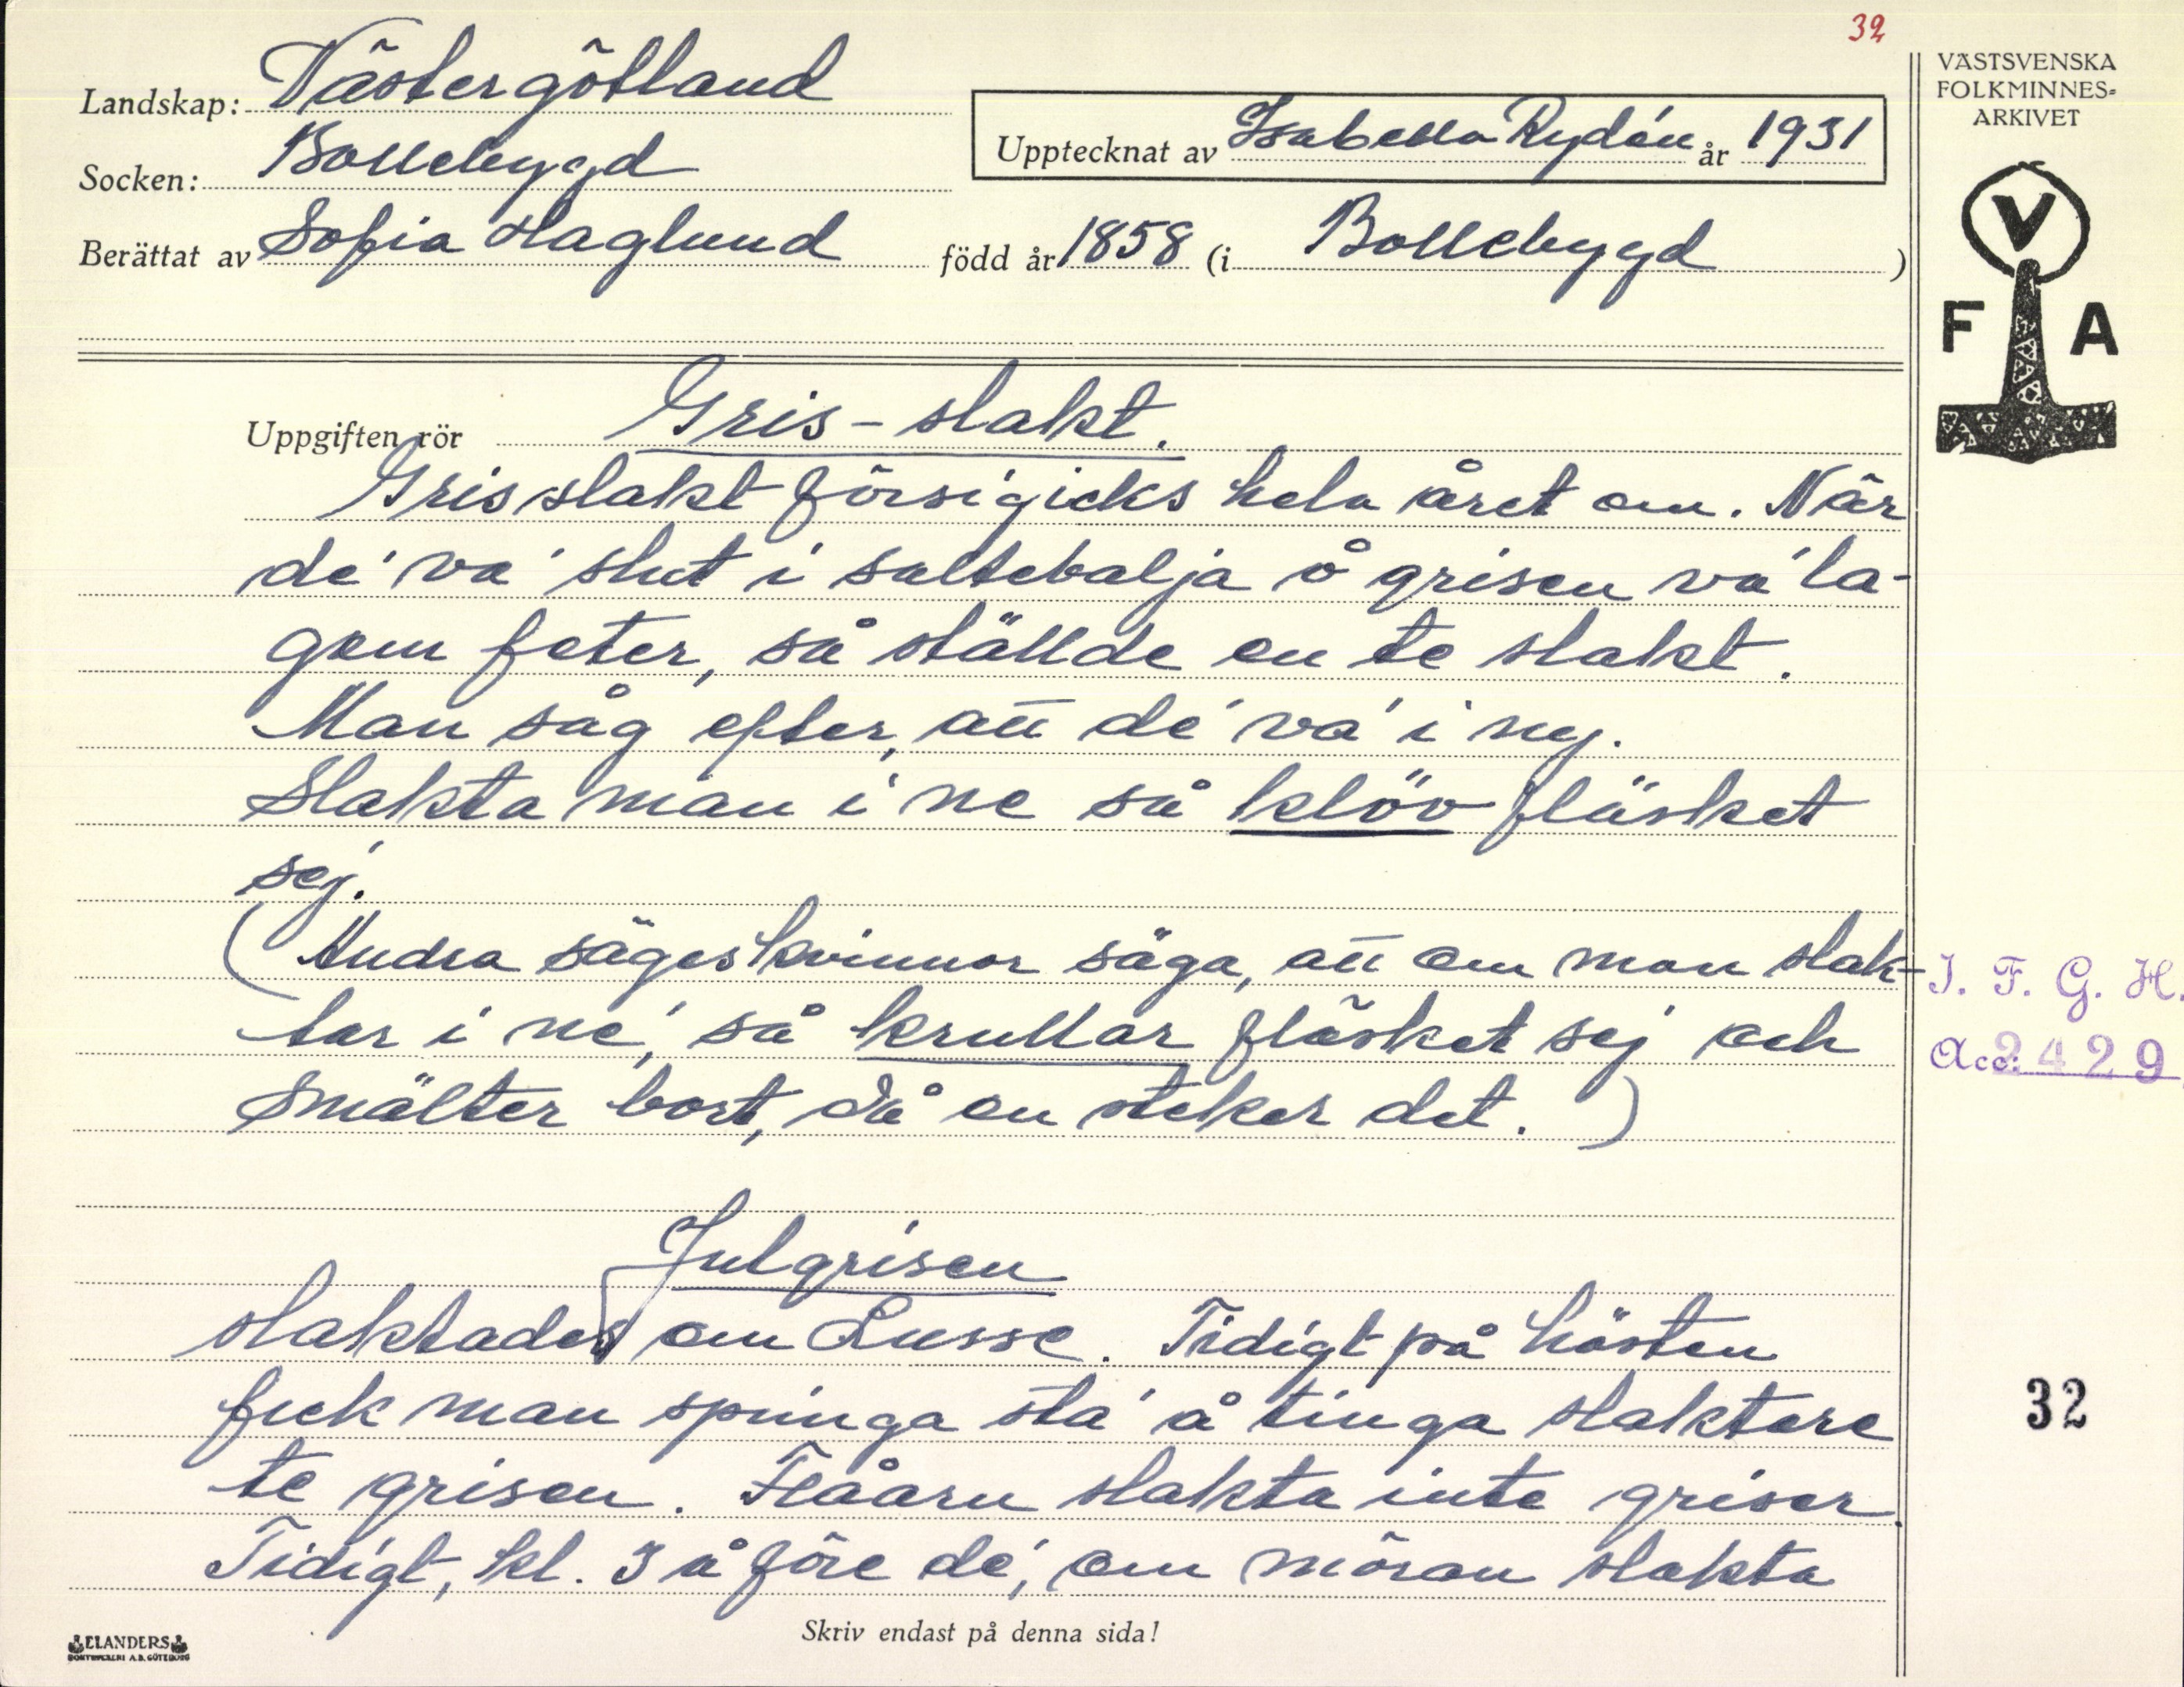 32
VÄSTSVENSKA
FOLKMINNES-
ARKIVET
Landskap: Västergötland
Upptecknat av Isabella Rydén år 1931
Socken: Bollebygd
Berättat av Sofia Haglund född år 1858 (i Bollebygd )
V
F A
Uppgiften rör Gris-slakt.
Grisslakt försigicks hela året om. När
de' va' slut i saltebalja å grisen va' la-
gom feter, så ställde en te slakt.
Man såg efter, att de' va' i ny.
Slakta man i ne så klöv fläsket
sej.
(Andra sägeskvinnor säga, att om man slak-
tar i ne', så krullar fläsket sej och
smälter bort, då en steker det.)
Julgrisen
slaktades om Lusse. Tidigt på hösten
fick man springa sta' å tinga slaktare
te grisen. Flåarn slakta inte griser.
Tidigt, kl. 3 å före de', om möran slakta
I. F. G. H.
Acc: 2429
32
Skriv endast på denna sida!
ELANDERS
BOKTRYCKERI A.B. GÖTEBORG